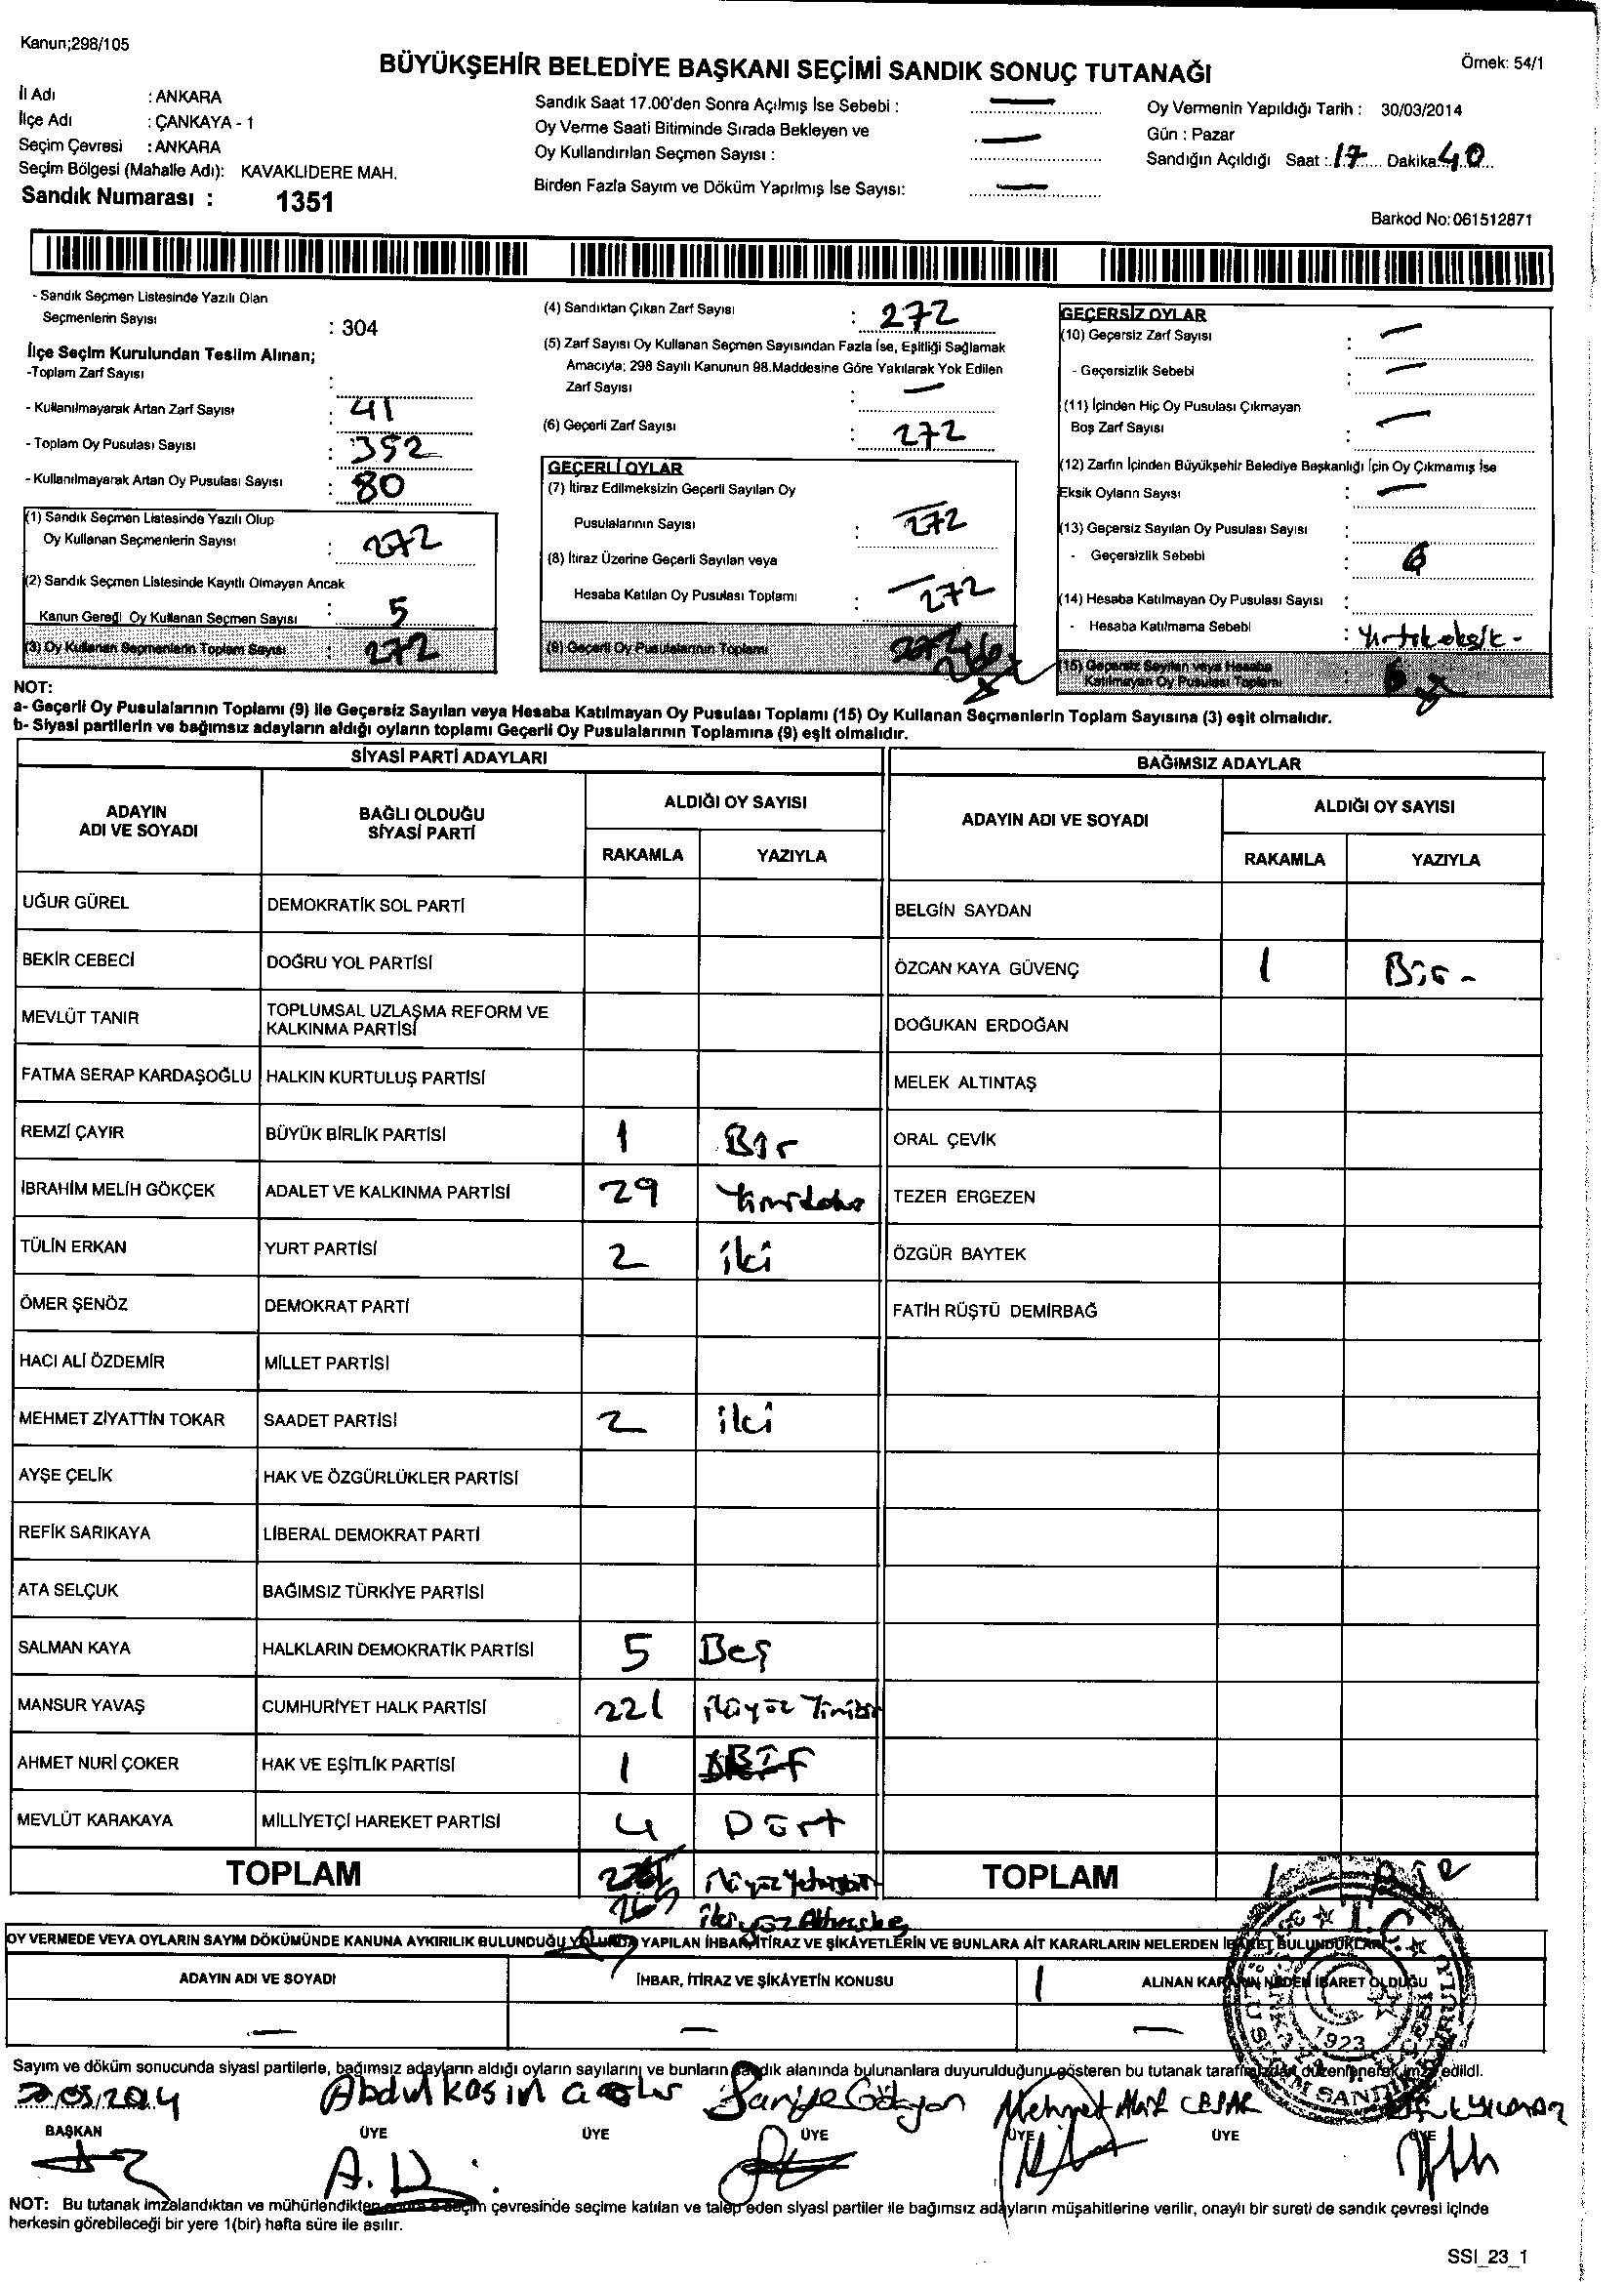 Kanun;298/105
BÜYÜKŞEHİR BELEDİYE BAŞKANI SEÇİMİ SANDIK SONUÇ TUTANAĞI
Örnek: 54/1
İl Adı : ANKARA
İlçe Adı : ÇANKAYA - 1
Seçim Çevresi : ANKARA
Seçim Bölgesi (Mahalle Adı): KAVAKLIDERE MAH.
Sandık Numarası : 1351
Sandık Saat 17.00'den Sonra Açılmış İse Sebebi : —
Oy Verme Saati Bitiminde Sırada Bekleyen ve
Oy Kullandırılan Seçmen Sayısı : —
Birden Fazla Sayım ve Döküm Yapılmış İse Sayısı: —
Oy Vermenin Yapıldığı Tarih : 30/03/2014
Gün : Pazar
Sandığın Açıldığı Saat : 17 Dakika 40
Barkod No: 061512871
- Sandık Seçmen Listesinde Yazılı Olan
Seçmenlerin Sayısı : 304
İlçe Seçim Kurulundan Teslim Alınan;
-Toplam Zarf Sayısı :
- Kullanılmayarak Artan Zarf Sayısı : 41
- Toplam Oy Pusulası Sayısı : 352
- Kullanılmayarak Artan Oy Pusulası Sayısı : 80
(1) Sandık Seçmen Listesinde Yazılı Olup
Oy Kullanan Seçmenlerin Sayısı : 272
(2) Sandık Seçmen Listesinde Kayıtlı Olmayan Ancak
Kanun Gereği Oy Kullanan Seçmen Sayısı : 5
(3) Oy Kullanan Seçmenlerin Toplam Sayısı : 272
(4) Sandıktan Çıkan Zarf Sayısı : 272
(5) Zarf Sayısı Oy Kullanan Seçmen Sayısından Fazla İse, Eşitliği Sağlamak
Amacıyla; 298 Sayılı Kanunun 98.Maddesine Göre Yakılarak Yok Edilen
Zarf Sayısı : —
(6) Geçerli Zarf Sayısı : 272
GEÇERLİ OYLAR
(7) İtiraz Edilmeksizin Geçerli Sayılan Oy
Pusulalarının Sayısı : 272
(8) İtiraz Üzerine Geçerli Sayılan veya
Hesaba Katılan Oy Pusulası Toplamı : 272
(9) Geçerli Oy Pusulalarının Toplamı : 272 266
GEÇERSİZ OYLAR
(10) Geçersiz Zarf Sayısı : —
- Geçersizlik Sebebi : —
(11) İçinden Hiç Oy Pusulası Çıkmayan
Boş Zarf Sayısı : —
(12) Zarfın İçinden Büyükşehir Belediye Başkanlığı İçin Oy Çıkmamış İse
Eksik Oyların Sayısı : —
(13) Geçersiz Sayılan Oy Pusulası Sayısı :
- Geçersizlik Sebebi : 6
(14) Hesaba Katılmayan Oy Pusulası Sayısı :
- Hesaba Katılmama Sebebi : Yırtık eksik -
(15) Geçersiz Sayılan veya Hesaba
Katılmayan Oy Pusulası Toplamı : 6
NOT:
a- Geçerli Oy Pusulalarının Toplamı (9) ile Geçersiz Sayılan veya Hesaba Katılmayan Oy Pusulası Toplamı (15) Oy Kullanan Seçmenlerin Toplam Sayısına (3) eşit olmalıdır.
b- Siyasi partilerin ve bağımsız adayların aldığı oyların toplamı Geçerli Oy Pusulalarının Toplamına (9) eşit olmalıdır.
SİYASİ PARTİ ADAYLARI
ADAYIN ADI VE SOYADI BAĞLI OLDUĞU SİYASİ PARTİ ALDIĞI OY SAYISI
RAKAMLA YAZIYLA
UĞUR GÜREL DEMOKRATİK SOL PARTİ
BEKİR CEBECİ DOĞRU YOL PARTİSİ
MEVLÜT TANIR TOPLUMSAL UZLAŞMA REFORM VE KALKINMA PARTİSİ
FATMA SERAP KARDAŞOĞLU HALKIN KURTULUŞ PARTİSİ
REMZİ ÇAYIR BÜYÜK BİRLİK PARTİSİ 1 Bir
İBRAHİM MELİH GÖKÇEK ADALET VE KALKINMA PARTİSİ 29 Yirmidokuz
TÜLİN ERKAN YURT PARTİSİ 2 iki
ÖMER ŞENÖZ DEMOKRAT PARTİ
HACI ALİ ÖZDEMİR MİLLET PARTİSİ
MEHMET ZİYATTİN TOKAR SAADET PARTİSİ 2 iki
AYŞE ÇELİK HAK VE ÖZGÜRLÜKLER PARTİSİ
REFİK SARIKAYA LİBERAL DEMOKRAT PARTİ
ATA SELÇUK BAĞIMSIZ TÜRKİYE PARTİSİ
SALMAN KAYA HALKLARIN DEMOKRATİK PARTİSİ 5 Beş
MANSUR YAVAŞ CUMHURİYET HALK PARTİSİ 221 ikiyüz Yirmibir
AHMET NURİ ÇOKER HAK VE EŞİTLİK PARTİSİ 1 Bir
MEVLÜT KARAKAYA MİLLİYETÇİ HAREKET PARTİSİ 4 Dört
TOPLAM 265 ikiyüz Altmışbeş
BAĞIMSIZ ADAYLAR
ADAYIN ADI VE SOYADI ALDIĞI OY SAYISI
RAKAMLA YAZIYLA
BELGİN SAYDAN
ÖZCAN KAYA GÜVENÇ 1 Bir -
DOĞUKAN ERDOĞAN
MELEK ALTINTAŞ
ORAL ÇEVİK
TEZER ERGEZEN
ÖZGÜR BAYTEK
FATİH RÜŞTÜ DEMİRBAĞ
TOPLAM 1 Bir
OY VERMEDE VEYA OYLARIN SAYIM DÖKÜMÜNDE KANUNA AYKIRILIK BULUNDUĞU YOLUNDA YAPILAN İHBAR, İTİRAZ VE ŞİKÂYETLERİN VE BUNLARA AİT KARARLARIN NELERDEN İBARET BULUNDUKLARI
ADAYIN ADI VE SOYADI İHBAR, İTİRAZ VE ŞİKÂYETİN KONUSU ALINAN KARARIN NEDEN İBARET OLDUĞU
— — —
T.C.
1923
Sayım ve döküm sonucunda siyasi partilerle, bağımsız adayların aldığı oyların sayılarını ve bunların sandık alanında bulunanlara duyurulduğunu gösteren bu tutanak tarafımızdan düzenlenerek imza edildi.
30/03/2014
BAŞKAN ÜYE ÜYE ÜYE ÜYE ÜYE ÜYE
NOT: Bu tutanak imzalandıktan ve mühürlendikten sonra o seçim çevresinde seçime katılan ve talep eden siyasi partiler ile bağımsız adayların müşahitlerine verilir, onaylı bir sureti de sandık çevresi içinde
herkesin görebileceği bir yere 1(bir) hafta süre ile asılır.
SSI_23_1